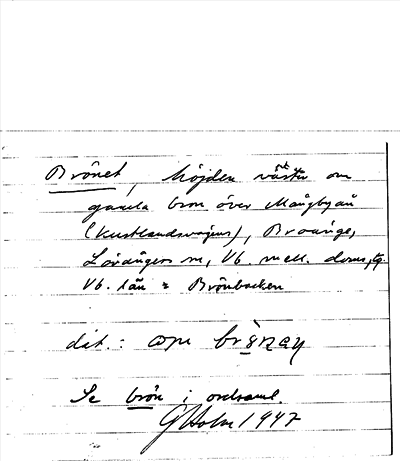 Brönet, höjden väster om
gamla bron över Mångbyån
(kustlandsvägen), Broänge,
Lövångers sn, Vb. mell. doms,
Vb. län = Brönbacken
dial.:
Se brön i ordsaml.
G Holm 1947